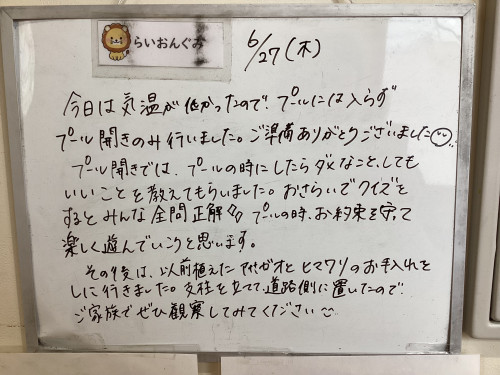 らいおんぐみ
6/27(木)
今日は気温が低かったので、プールには入らず
プール開きのみ行いました。ご準備ありがとうございました
プール開きでは、プールの時にしたらダメなこと、しても
いいことを教えてもらいました。おさらいでクイズを
するとみんな全問正解 プールの時、お約束を守って
楽しく遊んでいこうと思います。
その後は、以前植えたアサガオとヒマワリのお手入れを
しに行きました。支柱を立てて、道路側に置いたので
ご家族でぜひ観察してみてください